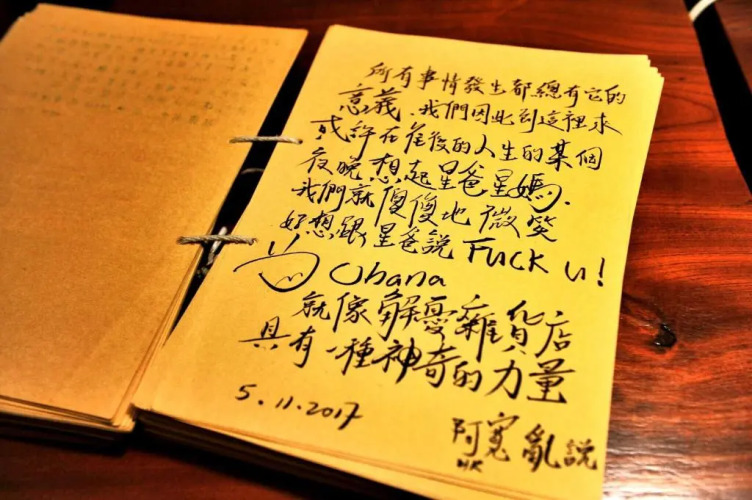 所有事情發生都總有它的
意義、我們因此到這裡來
或許在往後的人生的某個
夜晚想起星爸星媽、
我們就傻傻地微笑
好想跟星爸說 FUCK U!
Ohana
就像解憂雜貨店
具有一種神奇的力量
5.11.2017
阿寬亂說
HK